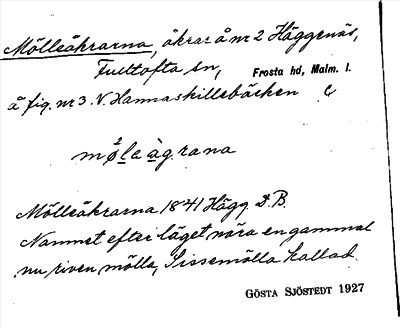 Mölleåkrarna, åkrar å nr 2 Häggenäs,
Fulltofta sn, Frosta hd, Malm. l.
å fig. nr 3. V. Hannaskillebäcken
møle àgrana
Mölleåkrarna 1841 Hägg. D.B.
Namnet efter läget nära en gammal
nu riven mölla, Sissemölla kallad.
GÖSTA SJÖSTEDT 1927